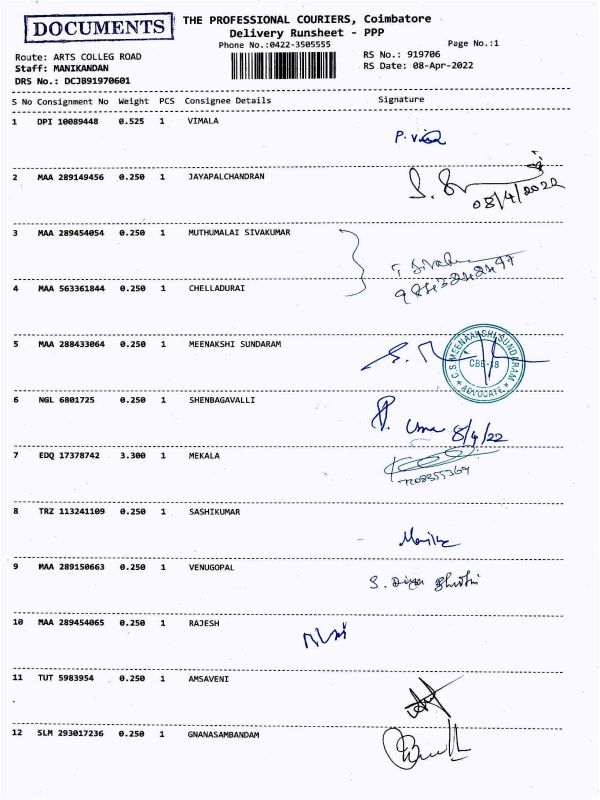 DOCUMENTS
THE PROFESSIONAL COURIERS, Coimbatore
Delivery Runsheet - PPP
Phone No.:0422-3505555
Page No.:1
Route: ARTS COLLEG ROAD
RS No.: 919706
Staff: MANIKANDAN
RS Date: 08-Apr-2022
DRS No.: DCJB91970601
S No Consignment No Weight PCS Consignee Details Signature
1 DPI 10089448 0.525 1 VIMALA
2 MAA 289149456 0.250 1 JAYAPALCHANDRAN
08/4/2022
3 MAA 289454054 0.250 1 MUTHUMALAI SIVAKUMAR
4 MAA 563361844 0.250 1 CHELLADURAI
5 MAA 288433064 0.250 1 MEENAKSHI SUNDARAM
C S MEENAAKSHI SUNDARAM
CBE-18
ADVOCATE
6 NGL 6801725 0.250 1 SHENBAGAVALLI
Uma 8/4/22
7 EDQ 17378742 3.300 1 MEKALA
8 TRZ 113241109 0.250 1 SASHIKUMAR
9 MAA 289150663 0.250 1 VENUGOPAL
10 MAA 289454065 0.250 1 RAJESH
11 TUT 5983954 0.250 1 AMSAVENI
12 SLM 293017236 0.250 1 GNANASAMBANDAM